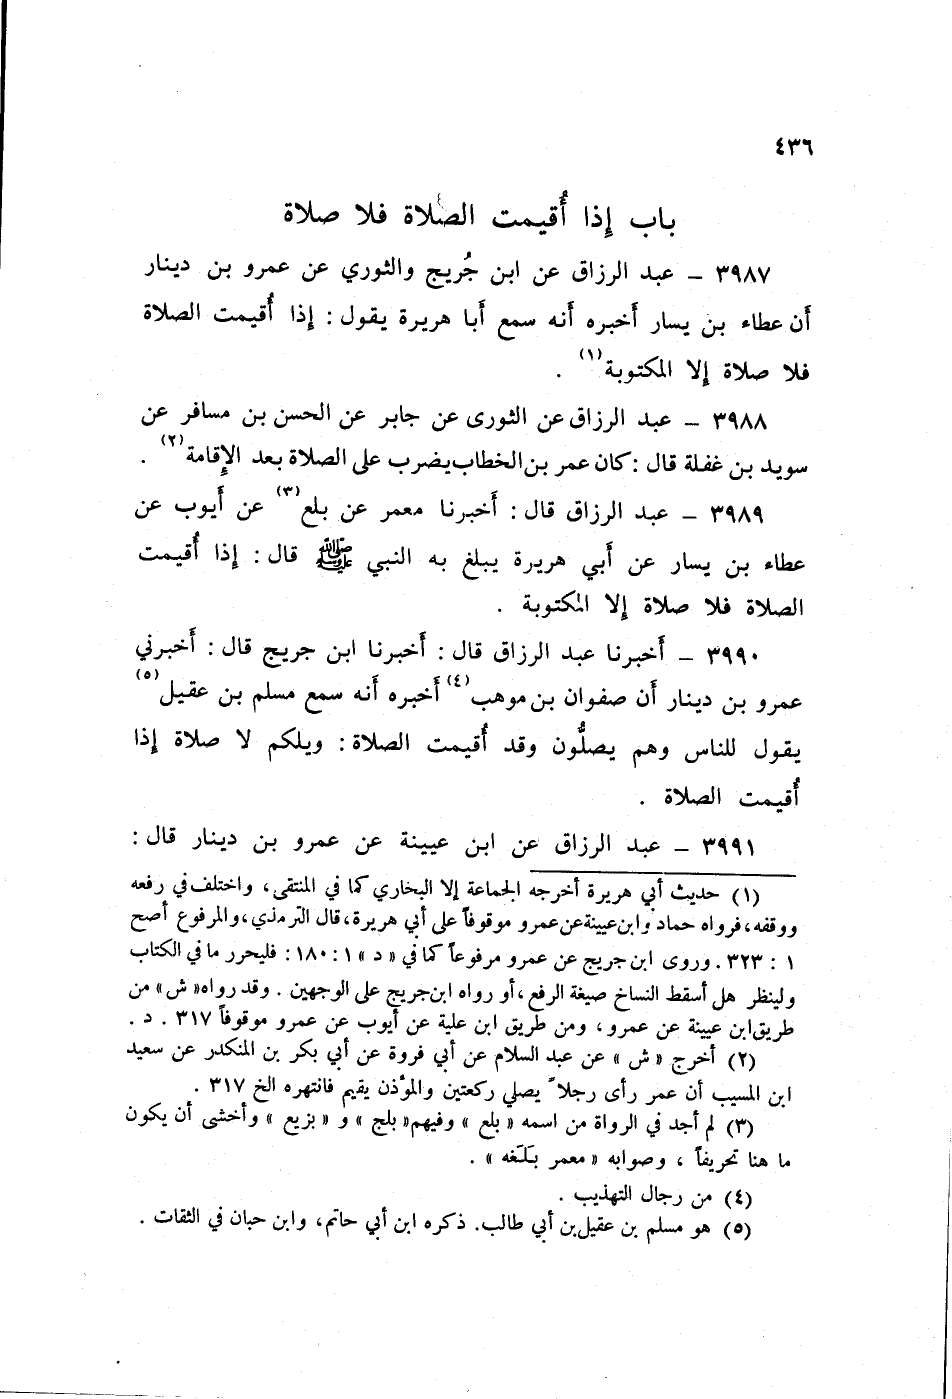 ٤٣٦
باب إذا أُقيمت الصلاة فلا صلاة
٣٩٨٧ – عبد الرزاق عن ابن جُريج والثوري عن عمرو بن دينار
أن عطاء بن يسار أخبره أنه سمع أبا هريرة يقول : إذا أُقيمت الصلاة
فلا صلاة إلا المكتوبة(١) .
٣٩٨٨ – عبد الرزاق عن الثورى عن جابر عن الحسن بن مسافر عن
سويد بن غفلة قال : كان عمر بن الخطاب يضرب على الصلاة بعد الإقامة(٢) .
٣٩٨٩ – عبد الرزاق قال : أخبرنا معمر عن بلع(٣) عن أيوب عن
عطاء بن يسار عن أبي هريرة يبلغ به النبي ﷺ قال : إذا أُقيمت
الصلاة فلا صلاة إلا المكتوبة .
٣٩٩٠ – أخبرنا عبد الرزاق قال : أخبرنا ابن جريج قال : أخبرني
عمرو بن دينار أن صفوان بن موهب(٤) أخبره أنه سمع مسلم بن عقيل(٥)
يقول للناس وهم يصلُّون وقد أُقيمت الصلاة : ويلكم لا صلاة إذا
أُقيمت الصلاة .
٣٩٩١ – عبد الرزاق عن ابن عيينة عن عمرو بن دينار قال :
(١) حديث أبي هريرة أخرجه الجماعة إلا البخاري كما في المنتقى، واختلف في رفعه
ووقفه، فرواه حماد وابن عيينة عن عمرو موقوفاً على أبي هريرة، قال الترمذي، والمرفوع أصح
١ : ٣٢٣. وروى ابن جريج عن عمرو مرفوعاً كما في « د » ١ : ١٨٠ : فليحرر ما في الكتاب
ولينظر هل أسقط النساخ صيغة الرفع، أو رواه ابن جريج على الوجهين . وقد رواه« ش » من
طريق ابن عيينة عن عمرو ، ومن طريق ابن علية عن أيوب عن عمرو موقوفاً ٣١٧ . د .
(٢) أخرج « ش » عن عبد السلام عن أبي فروة عن أبي بكر بن المنكدر عن سعيد
ابن المسيب أن عمر رأى رجلاً يصلي ركعتين والمؤذن يقيم فانتهره الخ ٣١٧ .
(٣) لم أجد في الرواة من اسمه « بلع » وفيهم« بلج » و « بزيع » وأخشى أن يكون
ما هنا تحريفاً ، وصوابه « معمر بَلَغه » .
(٤) من رجال التهذيب .
(٥) هو مسلم بن عقيل بن أبي طالب. ذكره ابن أبي حاتم، وابن حبان في الثقات .